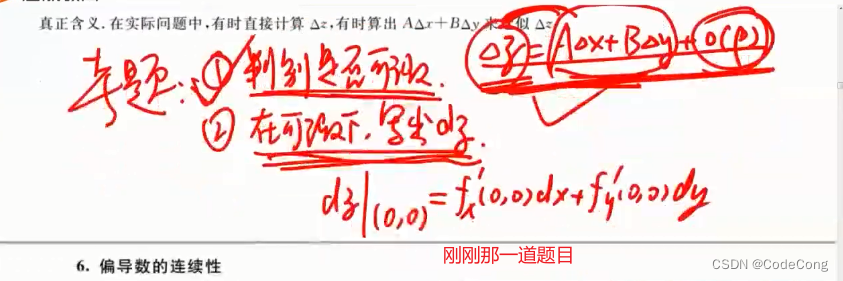 真正含义.在实际问题中,有时直接计算 Δz,有时算出 AΔx+BΔy 来 似 Δz
Δz=AΔx+BΔy+o(ρ)
考题: ① 判别是否可微.
② 在可微下,写出dz.
dz|(0,0)=fx'(0,0)dx+fy'(0,0)dy
刚刚那一道题目
6. 偏导数的连续性
CSDN @CodeCong